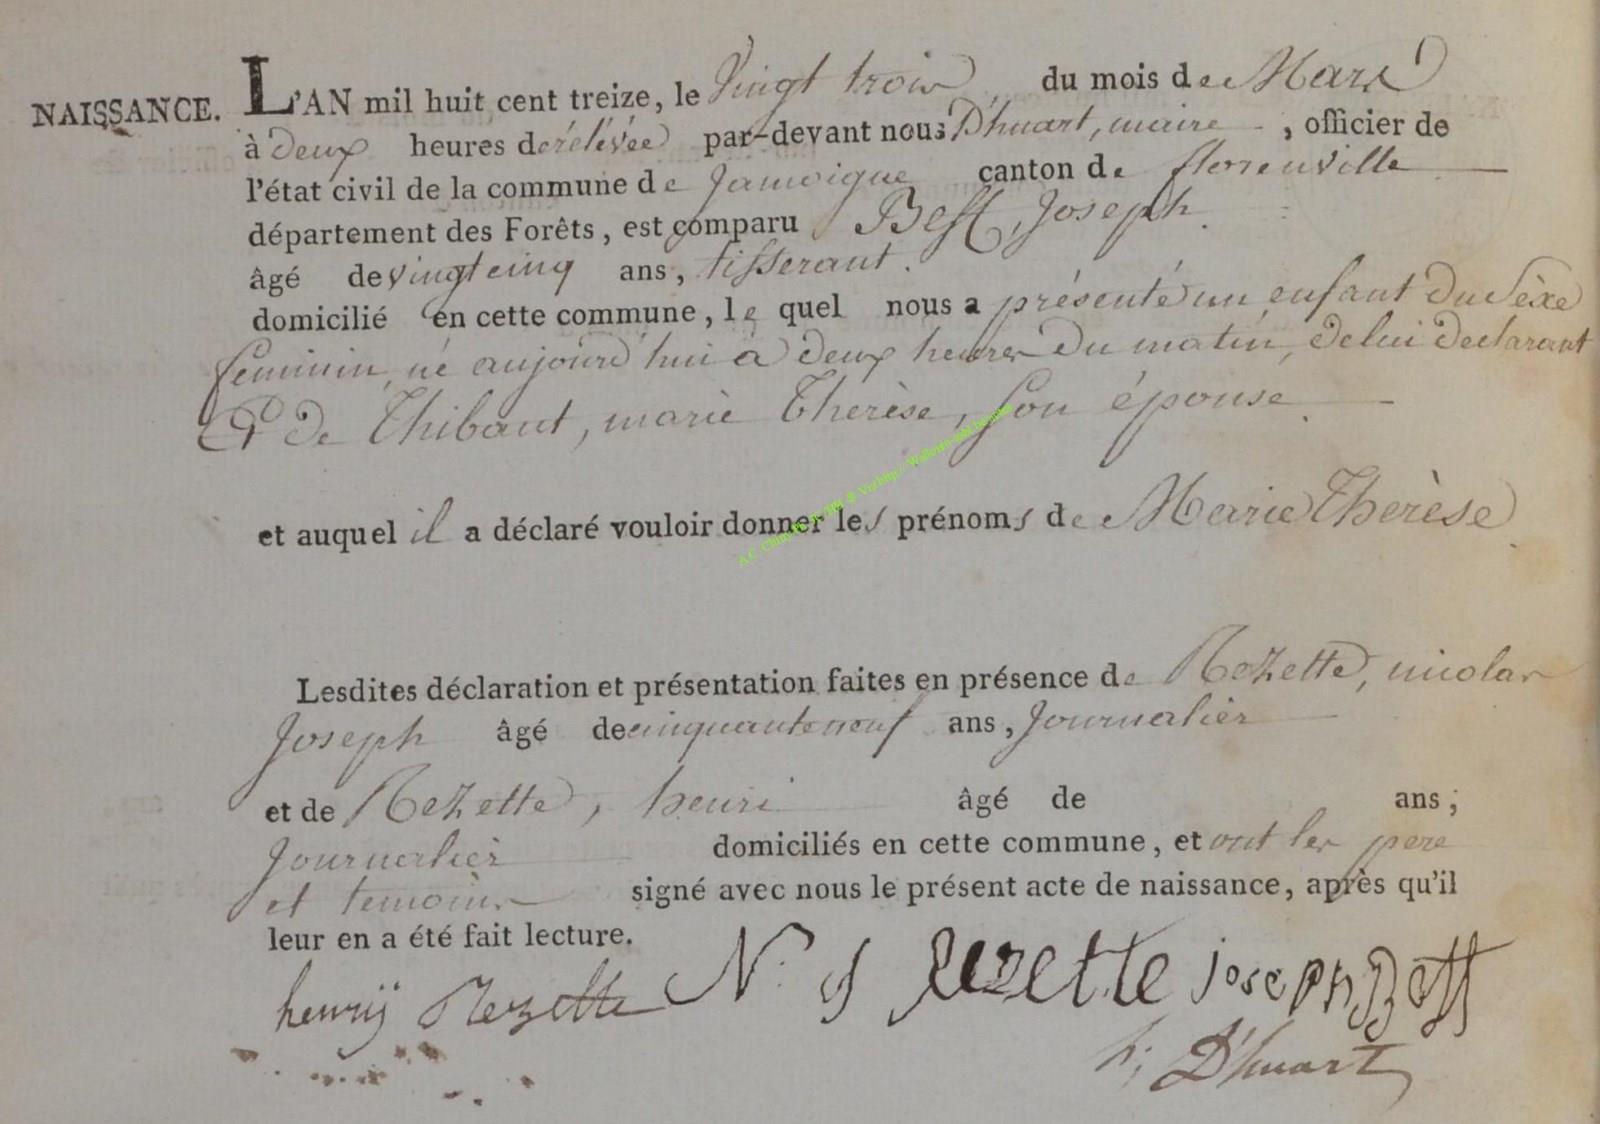 NAISSANCE. L'AN mil huit cent treize, le Vingt trois du mois de Mars
à deux heures de rélévée par-devant nous D'huart, maire, officier de
l'état civil de la commune de Jamoigne canton de florenville
département des Forêts, est comparu Best, Joseph
âgé de vingtcinq ans, tisserant.
domicilié en cette commune, le quel nous a présenté un enfant du Sèxe
feminin, né aujourd'hui à deux heures du matin, de lui declarant
& de Thibaut, marie Therèse, son épouse.
et auquel il a déclaré vouloir donner les prénoms de Marie Therèse
Lesdites déclaration et présentation faites en présence de Rezette, nicolas
Joseph âgé de cinquanteneuf ans, Journalier
et de Rezette, henri âgé de ans,
Journalier domiciliés en cette commune, et ont les pere
et temoins signé avec nous le présent acte de naissance, après qu'il
leur en a été fait lecture.
henrÿ Rezette N. J Rezette joseph Best
h; D'huart